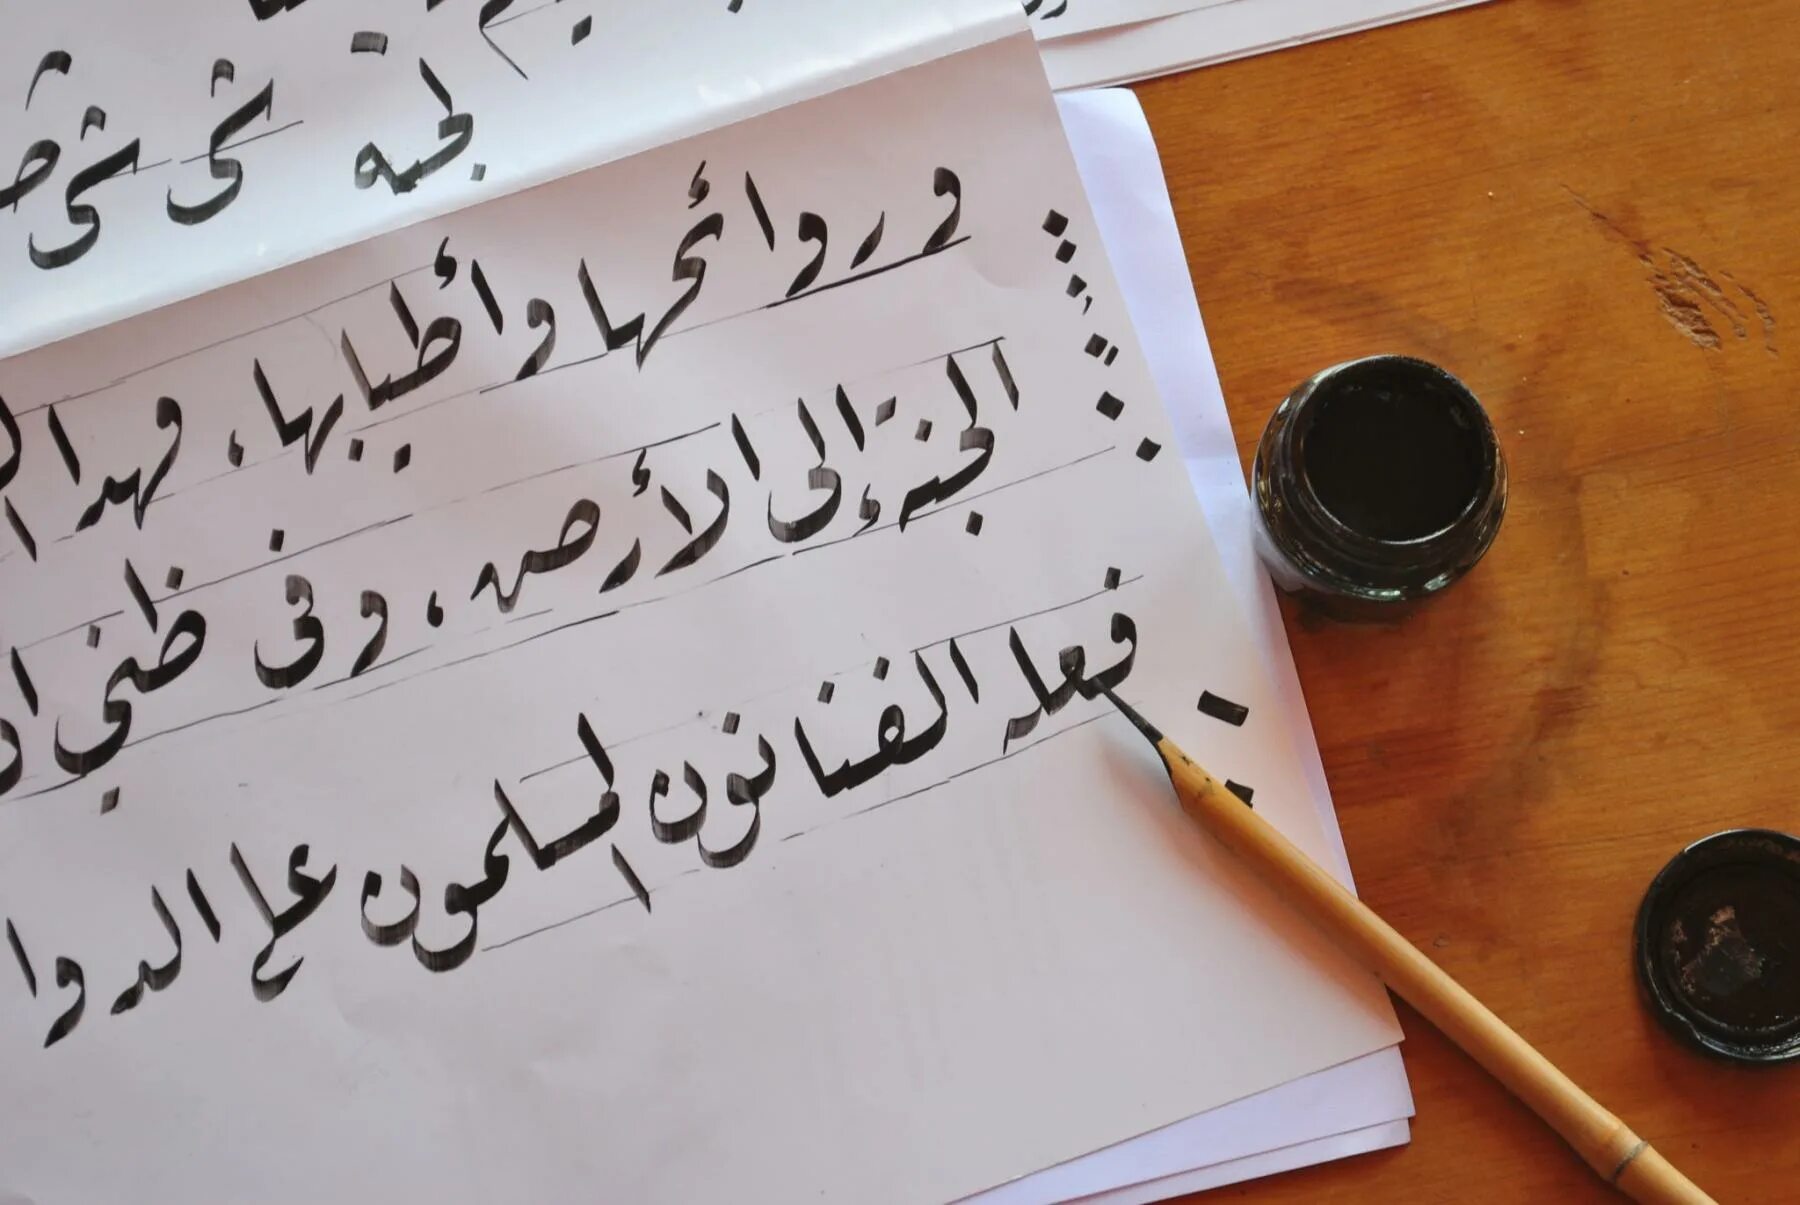 لجنة شى شى
و روائحها وأطيابها، فهدا
الجنة إلى الأرض، وفى ظني
فعله الفنانون المسلمون على الدوا